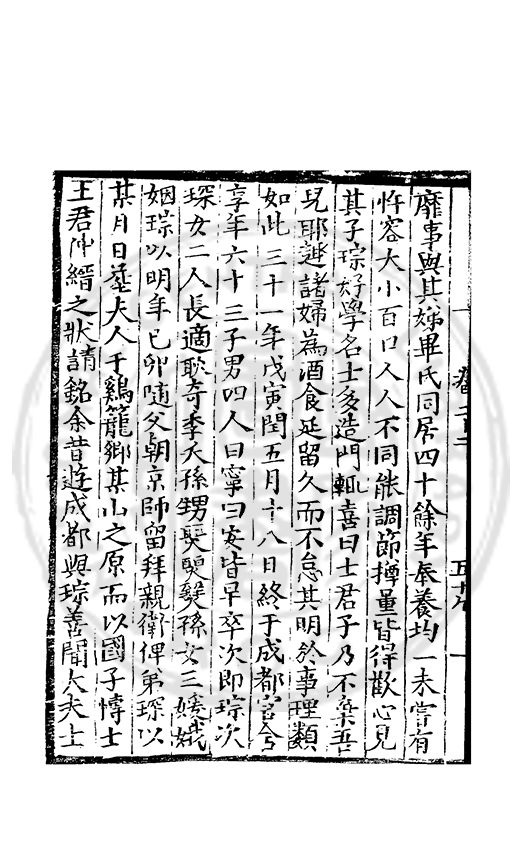 靡事與其娣畢氏同居四十餘年奉養均一未嘗有
忤容大小百口人人不同能調節撙量皆得歡心見
其子琮好學名士多造門輒喜曰士君子乃不棄吾
兒耶趣諸婦為酒食延留久而不怠其明於事理類
如此三十一年戊寅閏五月十八日終于成都官舍
享年六十三子男四人曰寧曰安皆早卒次即琮次
琛女二人長適聅奇季夭孫甥
孫女三
姻琮以明年己卯隨父朝京師留拜親衛俾弟琛以
某月日葬夫人于鷄籠鄉某山之原而以國子博士
王君仲縉之狀請銘余昔遊成都與琮善聞大夫士